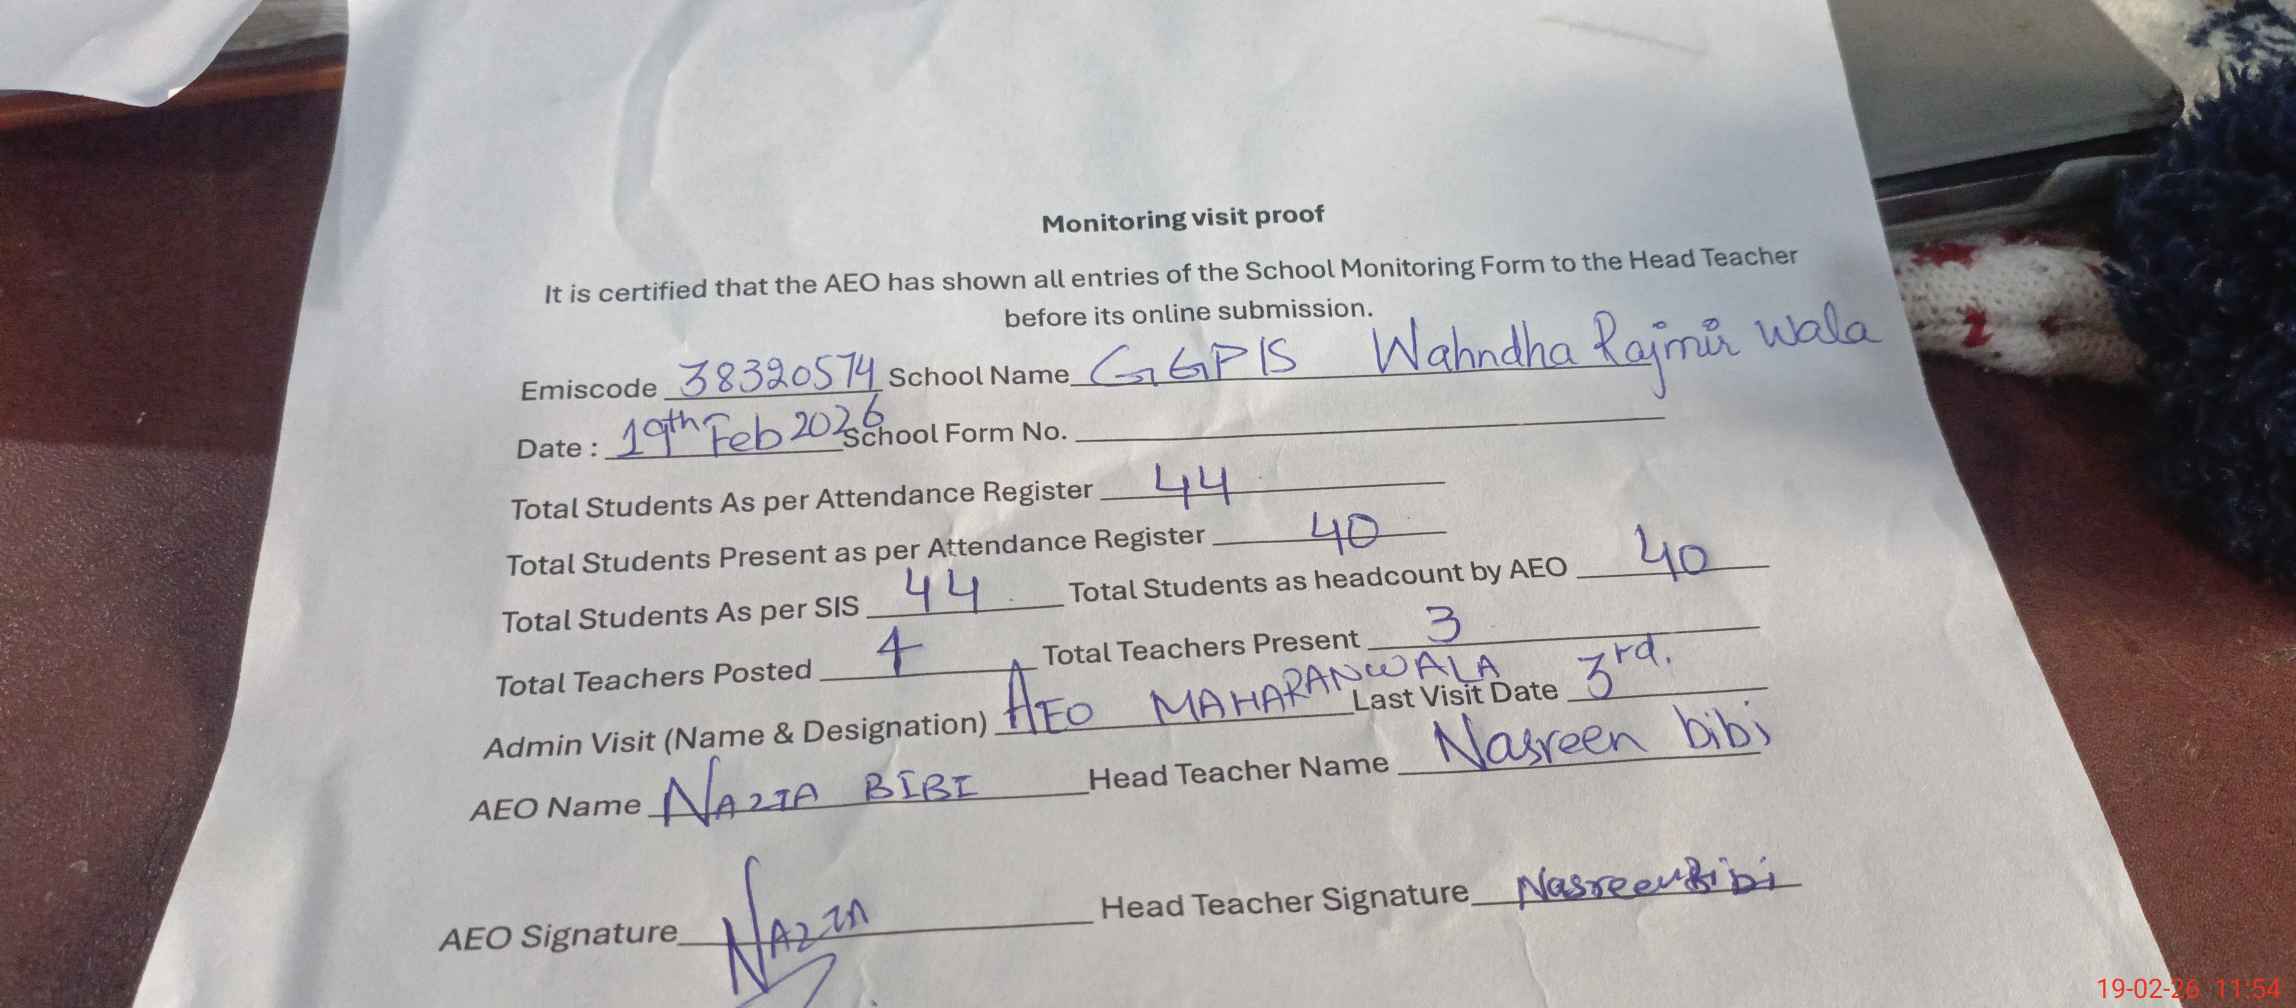 Monitoring visit proof
It is certified that the AEO has shown all entries of the School Monitoring Form to the Head Teacher
before its online submission.
Emiscode 38320574 School Name GGPS Wahndha Rajmir Wala
Date : 19th Feb 2026 School Form No.
Total Students As per Attendance Register 44
Total Students Present as per Attendance Register 40
Total Students As per SIS 44 Total Students as headcount by AEO 40
Total Teachers Posted 4 Total Teachers Present 3
Admin Visit (Name & Designation) AEO MAHARANWALA Last Visit Date 3rd.
AEO Name NAZIA BIBI Head Teacher Name Nasreen bibi
AEO Signature NAZIA Head Teacher Signature Nasreen Bibi
19-02-26 11:54